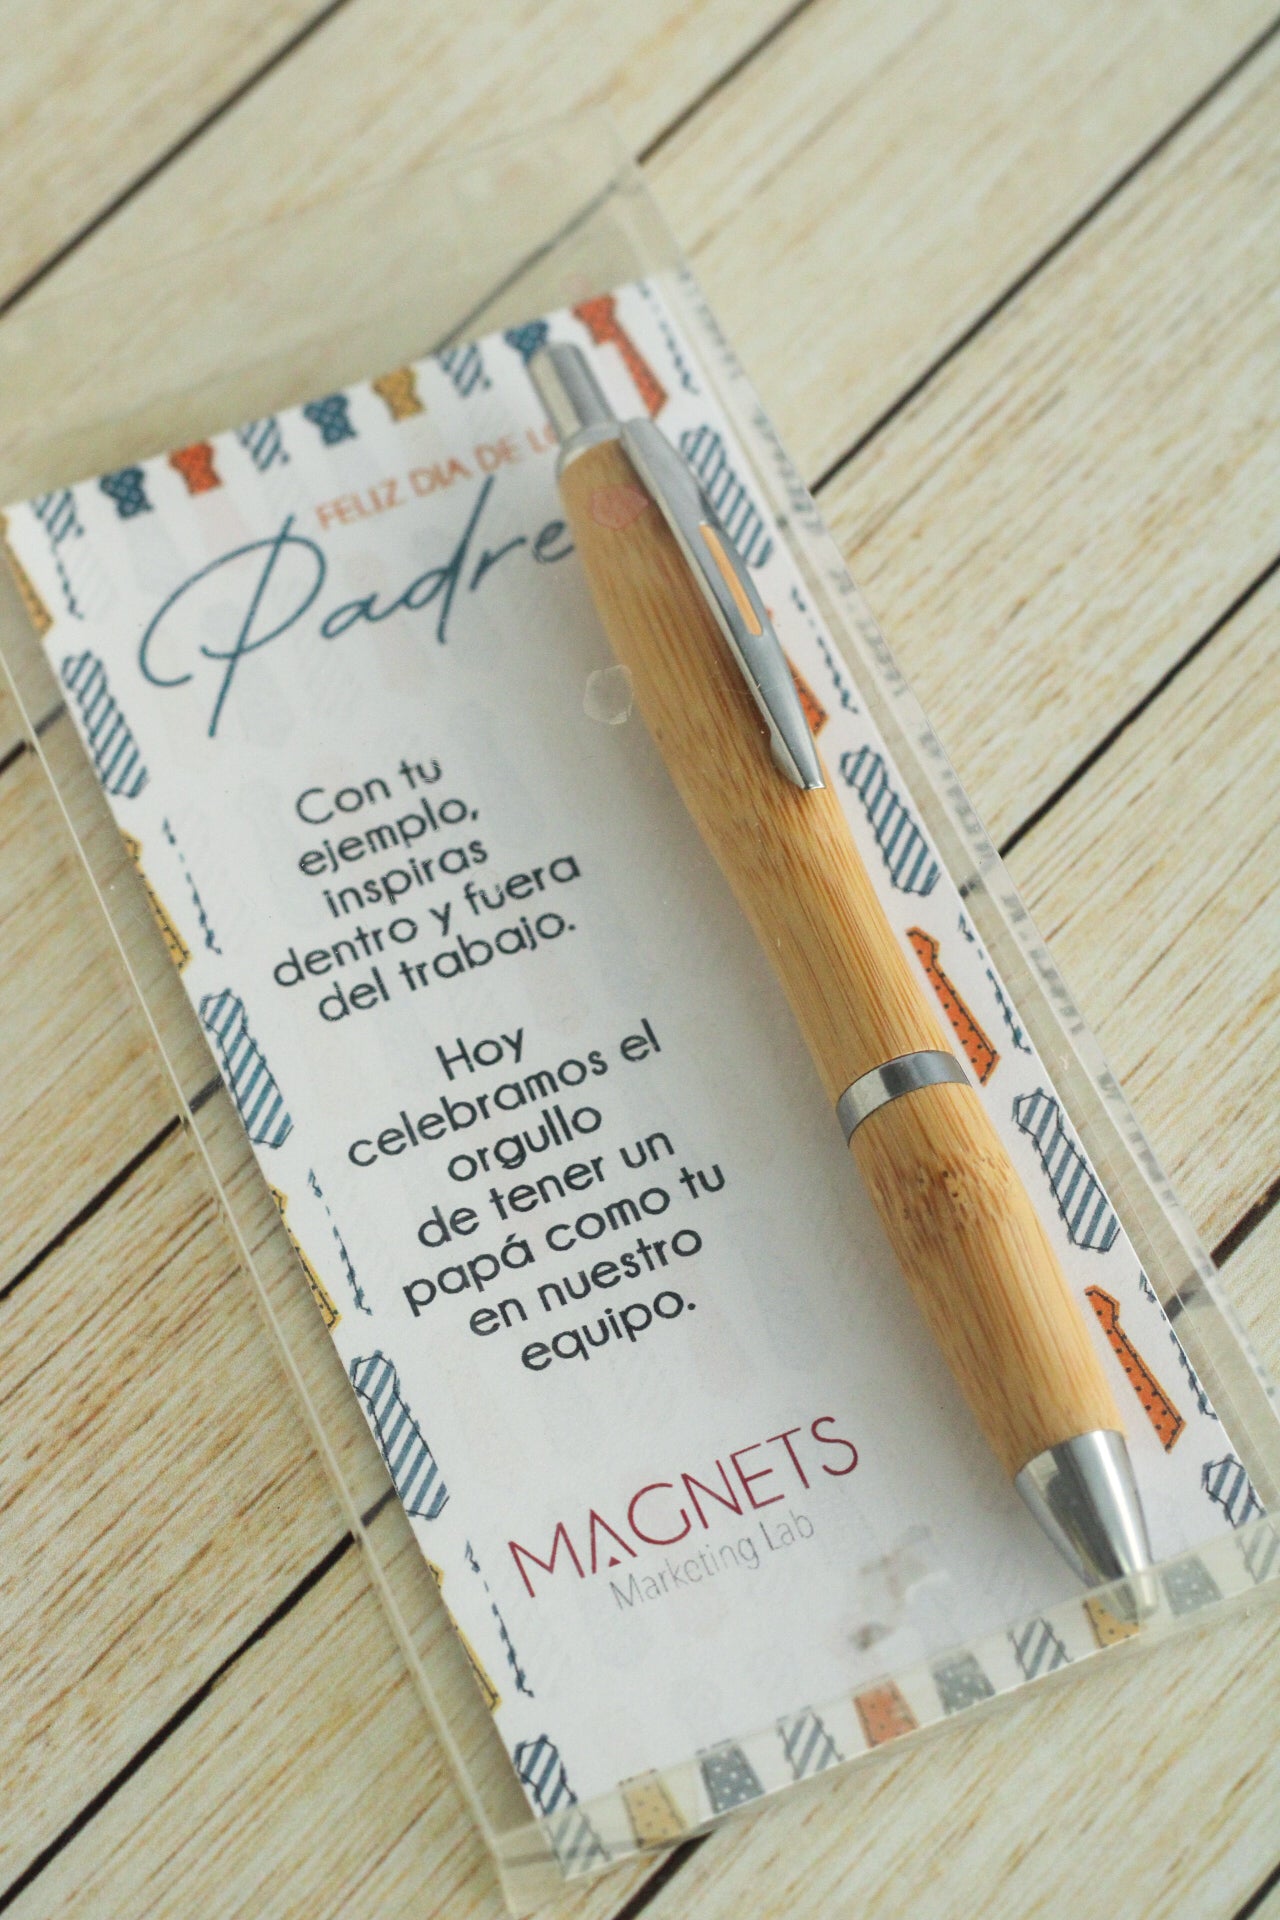 FELIZ DÍA DE LO
Padre
Con tu
ejemplo,
inspiras
dentro y fuera
del trabajo.
Hoy
celebramos el
orgullo
de tener un
papá como tu
en nuestro
equipo.
MAGNETS
Marketing Lab